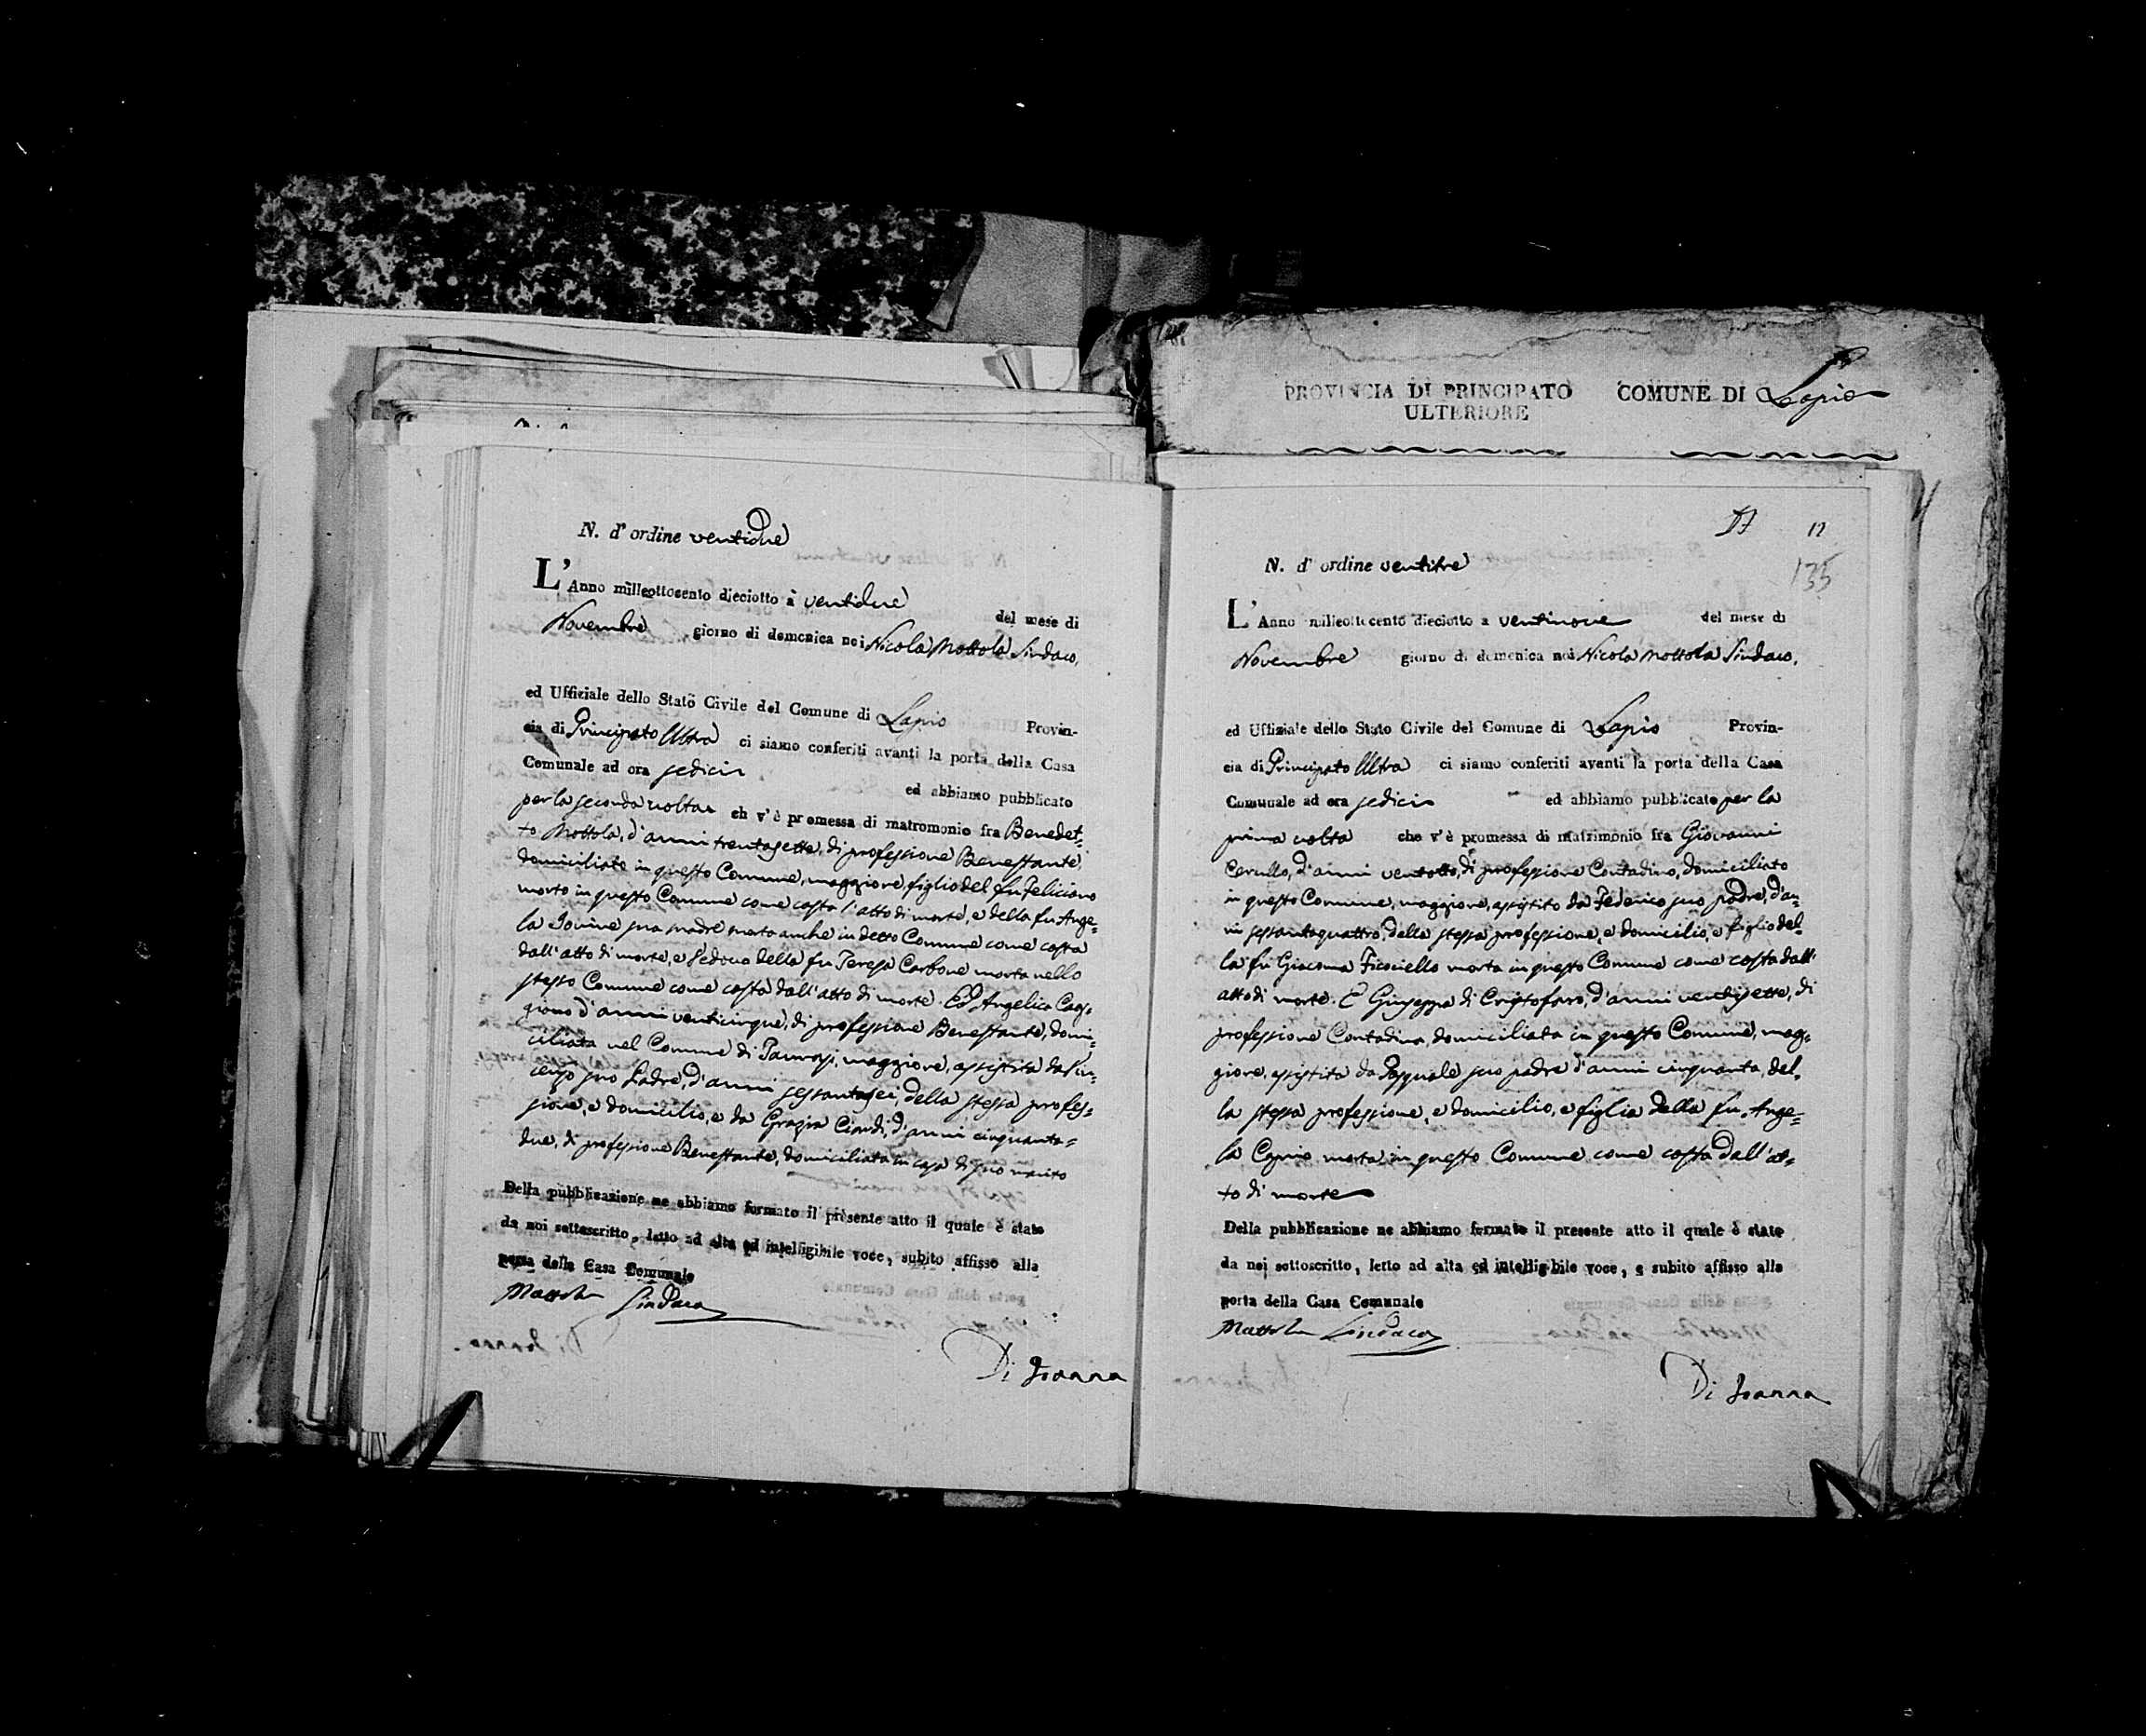 N. d'ordine ventidue
L'Anno milleottocento dieciotto à ventidue del mese di
Novembre giorno di domenica noi Nicola Mottola Sindaco,
ed Uffiziale dello Stato Civile del Comune di Lapio Provin-
cia di Principato Ultra ci siamo conferiti avanti la porta della Casa
Comunale ad ora sedici ed abbiamo pubblicato
per la seconda volta ch v'è promessa di matromonio fra Benedet=
to Mottola, d'anni trentasette, di professione Benestante,
domiciliato in questo Comune, maggiore, figlio del fu Feliciano
morto in questo Comune come costa l'atto di morte, e della fu Ange=
la Iovine sua madre morta anche in detto Comune come costa
dall'atto di morte, e Vedovo della fu Teresa Carbone morta nello
stesso Comune come costa dall'atto di morte. Ed Angelica Cag=
giano d'anni venticinque, di professione Benestante, domi=
ciliata nel Comune di Taurasi, maggiore, assistita da Vin=
cenzo suo Padre, d'anni sessantasei, della stessa profes=
sione, e domicilio, e da Grazia Ciardi, d'anni cinquanta=
due, di professione Benestante, domiciliata in casa di suo marito
Della pubblicazione ne abbiamo formato il presente atto il quale è stato
da noi sottoscritto, letto ad alta ed intelligibile voce, subito affisso alla
porta della Casa Comunale
Mottola Sindaco
Di Joanna
PROVINCIA DI PRINCIPATO COMUNE DI Lapio
ULTERIORE
12
135
N. d'ordine ventitre
L'Anno milleottocento dieciotto a ventinove del mese di
Novembre giorno di domenica noi Nicola Mottola Sindaco,
ed Uffiziale dello Stato Civile del Comune di Lapio Provin-
cia di Principato Ultra ci siamo conferiti avanti la porta della Casa
Comunale ad ora sedici ed abbiamo pubblicato per la
prima volta che v'è promessa di matrimonio fra Giovanni
Cerullo, d'anni ventotto, di professione Contadino, domiciliato
in questo Comune, maggiore, assistito da Federico suo padre, d'an=
ni sessantaquattro, della stessa professione, e domicilio, e figlio del=
la fu Giacoma Ficociello morta in questo Comune come costa dall'
atto di morte. E Giuseppa di Cristofaro, d'anni ventisette, di
professione Contadina, domiciliata in questo Comune, mag=
giore, assistita da Pasquale suo padre d'anni cinquanta, del=
la stessa professione, e domicilio, e figlia della fu Ange=
la Caprio morta in questo Comune come costa dall'at=
to di morte
Della pubblicazione ne abbiamo formato il presente atto il quale è stato
da noi sottoscritto, letto ad alta ed intelligibile voce, e subito affisso alla
porta della Casa Comunale
Mottola Sindaco
Di Joanna